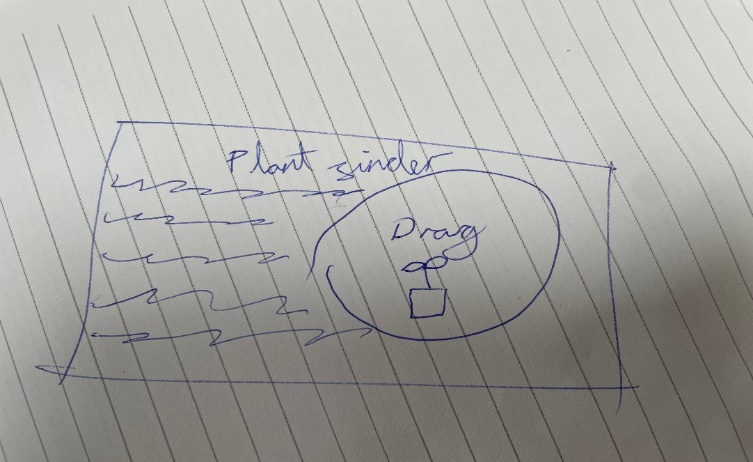 Plant finder
Drag